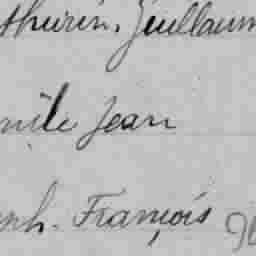 thurin, Guillaum
mile Jean
ph. François